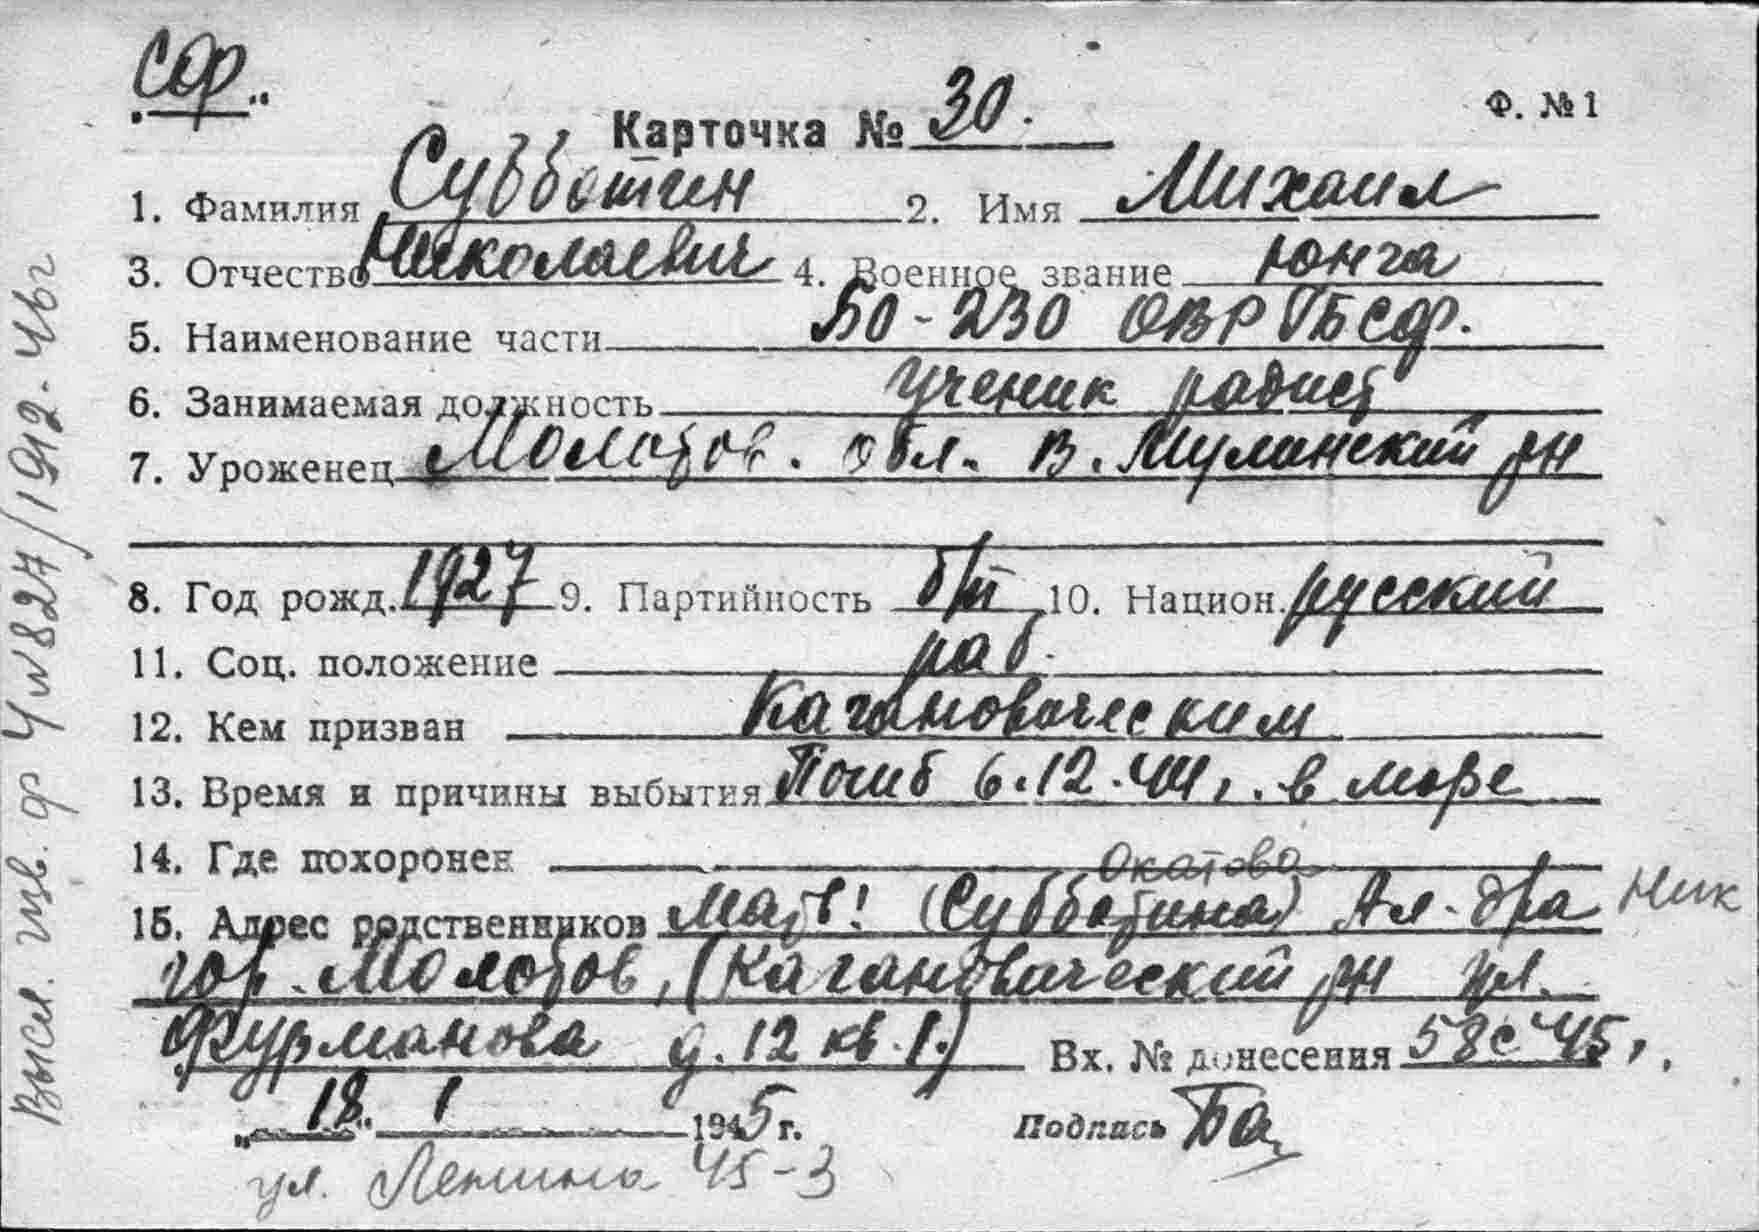 „Сф"
Ф. №1
Карточка № 30.
1. Фамилия Субботин 2. Имя Михаил
3. Отчество Николаевич 4. Военное звание юнга
5. Наименование части БО-230 ОВР ГБ Сф.
6. Занимаемая должность ученик радист
7. Уроженец Молотов. обл. В. Муллинский рн
8. Год рожд. 1927 9. Партийность б/п 10. Национ. русский
11. Соц. положение раб.
12. Кем призван Кагановическим
13. Время и причины выбытия Погиб 6.12.44г. в море
14. Где похоронен
Окатова
15. Адрес родственников мать: (Субботина) Ал-дра Ник
гор. Молотов, (Кагановический рн ул.
Фурманова д.12 кв.1.) Вх. № донесения 58с 45г.
„18" 1 1945 г. Подпись Ба
ул. Ленина 45-3
Высл. изв. ф 4 №827/1912. 46г